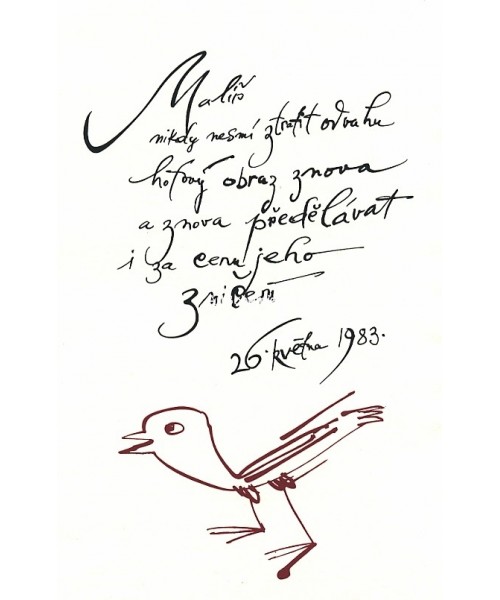 Malíř
nikdy nesmí ztratit odvahu
hotový obraz znova
a znova předělávat
i za cenu jeho
zničení
26. května 1983.